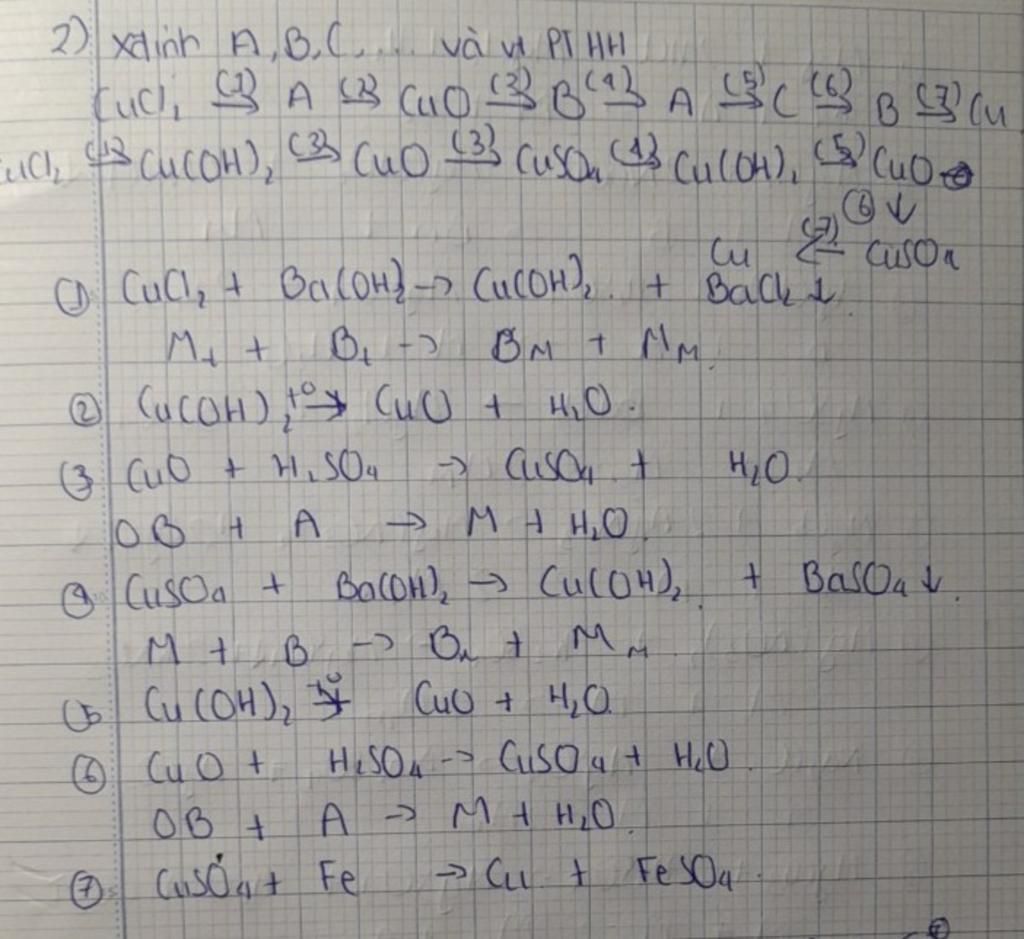 2) xđinh A, B, C.... và vt PTHH
CuCl₂ (1)→ A (2)→ CuO (3)→ B (4)→ A (5)→ C (6)→ B (7)→ Cu
CuCl₂ (1)→ Cu(OH)₂ (2)→ CuO (3)→ CuSO₄ (4)→ Cu(OH)₂ (5)→ CuO
(6) ↓
Cu (7)← CuSO₄
① CuCl₂ + Ba(OH)₂ → Cu(OH)₂ + BaCl₂ ↓.
Mₜ + Bₜ → Bᴍ + Mᴍ.
② Cu(OH)₂ t° → CuO + H₂O.
③ CuO + H₂SO₄ → CuSO₄ + H₂O.
OB + A → M + H₂O
④ CuSO₄ + Ba(OH)₂ → Cu(OH)₂ + BaSO₄ ↓.
M + B → Bᴍ + Mᴍ
⑤ Cu(OH)₂ t° → CuO + H₂O.
⑥ CuO + H₂SO₄ → CuSO₄ + H₂O.
OB + A → M + H₂O.
⑦ CuSO₄ + Fe → Cu + FeSO₄.